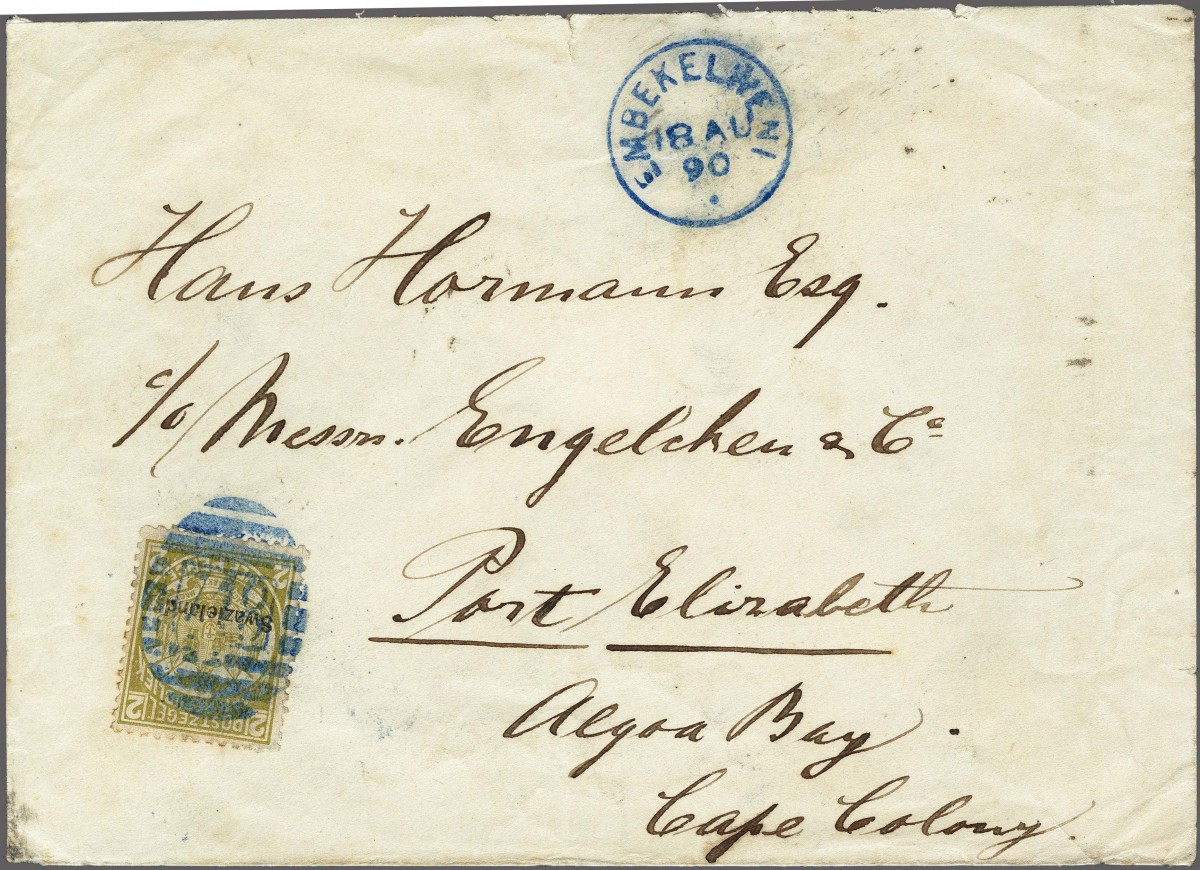 EMBEKELWENI
18 AU
90
Hans Hormann Esq.
c/o Messrs. Engelcken & Co
Port Elizabeth
Algoa Bay.
Cape Colony.
Swazieland
2 POSTZEGEL 2